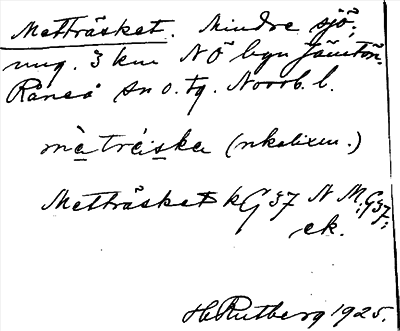 Metträsket. Mindre sjö,
ung. 3 km NÖ byn Jämtön
Råneå sn o. tg. Norrb. l.
mètráska (nkalixm.)
Metträsket kG 37 N M. G 37;
ek.
H. Rutberg 1925.